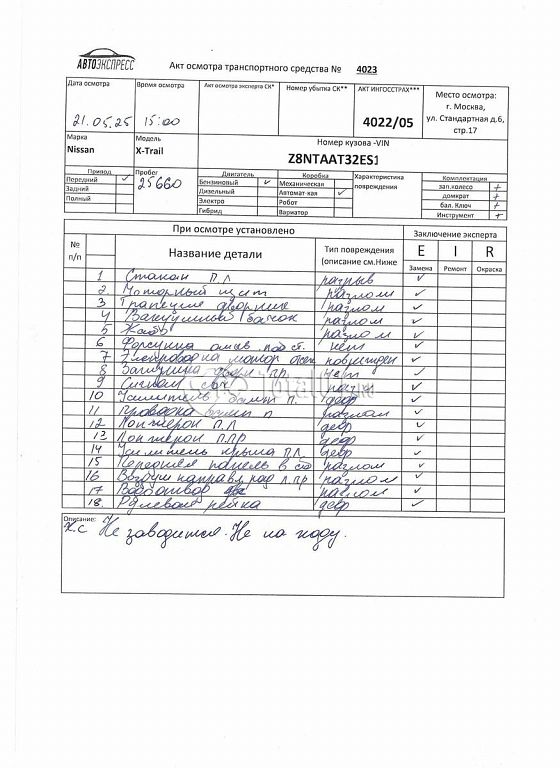 АВТОЭКСПРЕСС
Акт осмотра транспортного средства № 4023
Дата осмотра Время осмотра Акт осмотра эксперта СК* Номер убытка СК** АКТ ИНГОССТРАХ*** Место осмотра:
г. Москва,
21.05.25 15:00 4022/05 ул. Стандартная д.6,
стр.17
Марка Модель Номер кузова -VIN
Nissan X-Trail Z8NTAAT32ES1
Привод Пробег Двигатель Коробка Характеристика Комплектация
Передний ✓ 25660 Бензиновый ✓ Механическая повреждения зап.колесо +
Задний Дизельный Автомат-кая ✓ домкрат +
Полный Электро Робот бал. Ключ +
Гибрид Вариатор Инструмент +
При осмотре установлено Заключение эксперта
№ п/п Название детали Тип повреждения (описание см.Ниже E I R
Замена Ремонт Окраска
1 Стакан П.Л разрыв ✓
2. Моторный щит разлом ✓
3 Трапеция дворник разлом ✓
4 Вакуумный бачок разлом ✓
5 Жабо разлом ✓
6 Форсунка омыв. под ст. ✓
7 Электропроводка мотор поврежден ✓
8 пр. ✓
9 Сигнал ✓
10 Усилитель п. деф ✓
11 Проводка п разлом ✓
12 Лонжерон П.Л деф ✓
13 Лонжерон П.ПР деф ✓
14 Усилитель крыла П.Л деф ✓
15 Передняя панель в сб разлом ✓
16 Воздух направл. рад л.пр разлом ✓
17 Водоотвод разлом ✓
18. Рулевая рейка деф ✓
Описание:
Х.С Не заводится. Не на ходу.